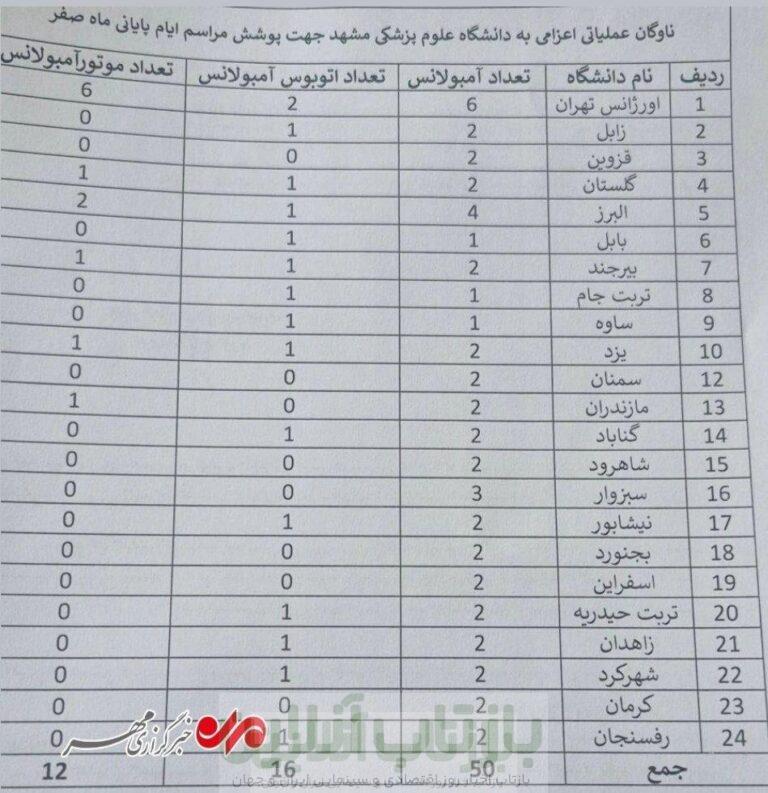 ناوگان عملیاتی اعزامی به دانشگاه علوم پزشکی مشهد جهت پوشش مراسم ایام پایانی ماه صفر
ردیف نام دانشگاه تعداد آمبولانس تعداد اتوبوس آمبولانس تعداد موتورآمبولانس
1 اورژانس تهران 6 2 6
2 زابل 2 1 0
3 قزوین 2 0 0
4 گلستان 2 1 1
5 البرز 4 1 2
6 بابل 1 1 0
7 بیرجند 2 1 1
8 تربت جام 1 1 0
9 ساوه 1 1 0
10 یزد 2 1 1
12 سمنان 2 0 0
13 مازندران 2 0 1
14 گناباد 2 1 0
15 شاهرود 2 0 0
16 سبزوار 3 0 0
17 نیشابور 2 1 0
18 بجنورد 2 0 0
19 اسفراین 2 0 0
20 تربت حیدریه 2 1 0
21 زاهدان 2 1 0
22 شهرکرد 2 1 0
23 کرمان 2 0 0
24 رفسنجان 2 1 0
جمع 50 16 12
خبرگزاری مهر
بازتاب آنلاین
بازتاب اخبار روز اقتصادی و سینمایی ایران و جهان